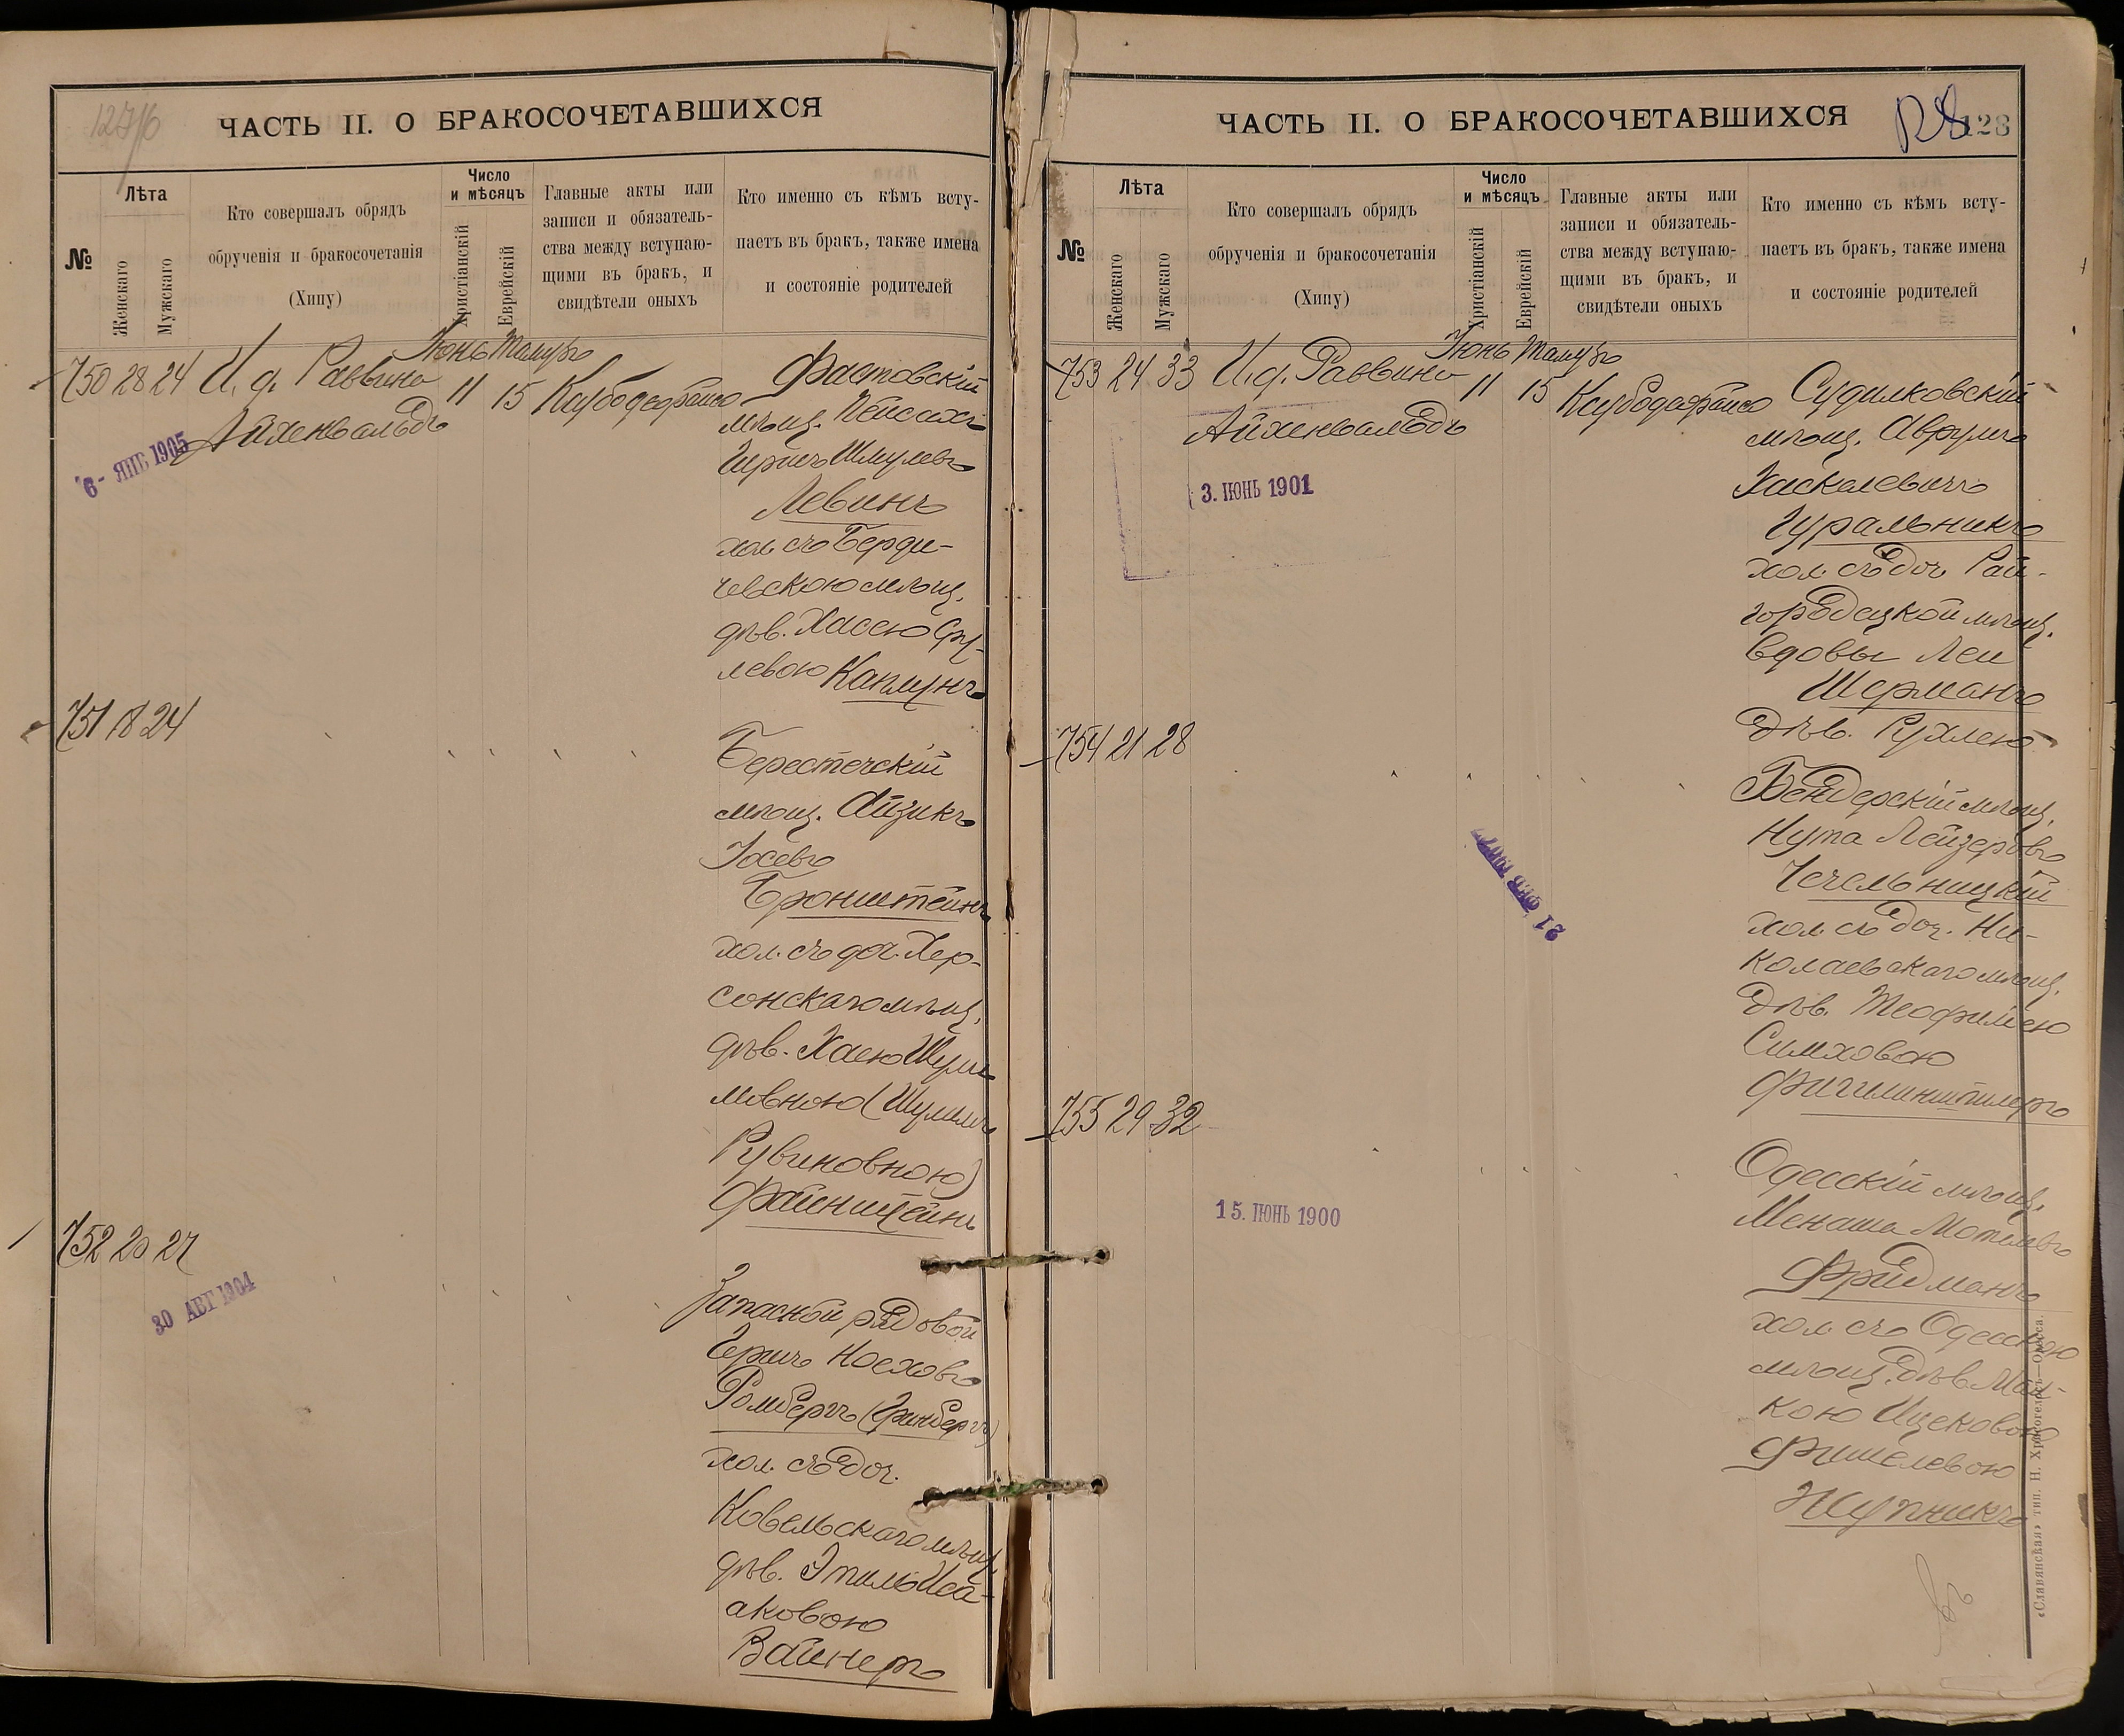 127/6
ЧАСТЬ II. О БРАКОСОЧЕТАВШИХСЯ
№
Лѣта
Женскаго
Мужскаго
Кто совершалъ обрядъ
обрученія и бракосочетанія
(Хипу)
Число
и мѣсяцъ
Христіанскій
Еврейскій
Главные акты или
записи и обязатель-
ства между вступаю-
щими въ бракъ, и
свидѣтели оныхъ
Кто именно съ кѣмъ всту-
паетъ въ бракъ, также имена
и состояніе родителей
Іюнь Тамузъ
750 28 24 И. д. Раввина 11 15
Айхенвальдъ
6 - ЯНВ 1905
Фастовскій
мѣщ. Пейсахъ
Гершъ Шмулевъ
Левинъ
хол. съ Берди-
чевскою мѣщ.
дѣв. Хассею Сру-
левою Каплунъ
751 18 24
Берестечскій
мѣщ. Айзикъ
Іосевъ
Бронштейнъ
хол. съ доч. Хер-
сонскаго мѣщ.
дѣв. Хаею Шули-
мовною (Шулимъ
Рувиновною)
Файнштейнъ
752 20 27
30 АВГ 1904
Запасной рядовой
Гершъ Ноеховъ
Ромбергъ (Гринбергъ)
хол. съ доч.
Ковельскаго мѣщ.
дѣв. Этиль Иса-
аковою
Вайнеръ
ЧАСТЬ II. О БРАКОСОЧЕТАВШИХСЯ
128
№
Лѣта
Женскаго
Мужскаго
Кто совершалъ обрядъ
обрученія и бракосочетанія
(Хипу)
Число
и мѣсяцъ
Христіанскій
Еврейскій
Главные акты или
записи и обязатель-
ства между вступаю-
щими въ бракъ, и
свидѣтели оныхъ
Кто именно съ кѣмъ всту-
паетъ въ бракъ, также имена
и состояніе родителей
Іюнь Тамузъ
753 24 33 И. д. Раввина 11 15
Айхенвальдъ
3. ІЮНЬ 1901
Судилковскій
мѣщ. Аврумъ
Хаскелевичъ
Гуральникъ
хол. съ доч. Рай-
городецкой мѣщ.
вдовы Леи
Шерманъ
дѣв. Рухлею
754 21 28
Бендерскій мѣщ.
Нута Лейзеровъ
Чечельницкій
хол. съ доч. Ни-
колаевскаго мѣщ.
дѣв. Теофиліею
Симховою
Фигилинштилеръ
21 ФЕВ 1907
755 29 32
15. ІЮНЬ 1900
Одесскій мѣщ.
Менаша Мотелевъ
Фридманъ
хол. съ Одесскою
мѣщ. дѣв. Мал-
кою Ицековою
Фишелевою
Жупникъ
«Славянская» тип. Н. Хрисогелосъ—Одесса.